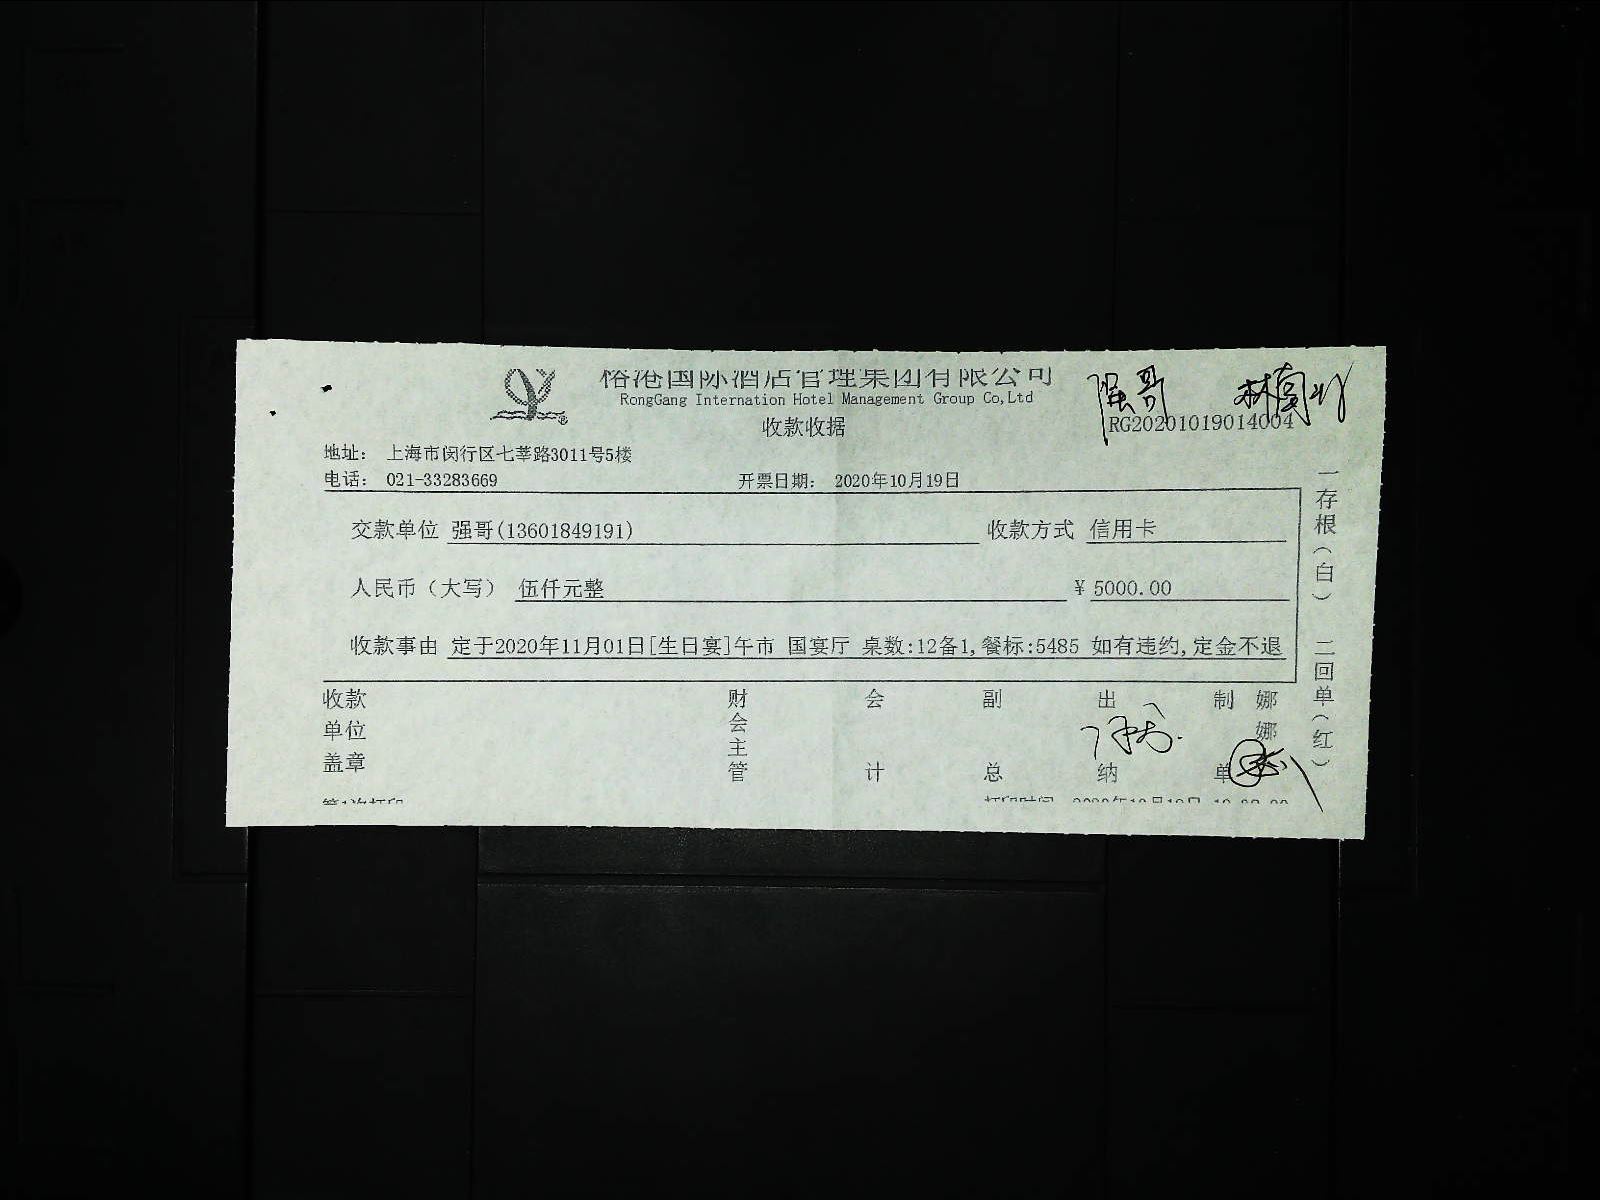 榕港国际酒店管理集团有限公司
RongGang Internation Hotel Management Group Co,Ltd
收款收据
强哥
RG20201019014004
地址： 上海市闵行区七莘路3011号5楼
电话： 021-33283669 开票日期： 2020年10月19日
交款单位 强哥(13601849191) 收款方式 信用卡
人民币（大写） 伍仟元整 ¥ 5000.00
收款事由 定于2020年11月01日[生日宴]午市 国宴厅 桌数:12备1,餐标:5485 如有违约,定金不退
收款单位盖章 财会主管 会计 副总 出纳 制单 娜娜
第1次打印 打印时间
一存根（白） 二回单（红）